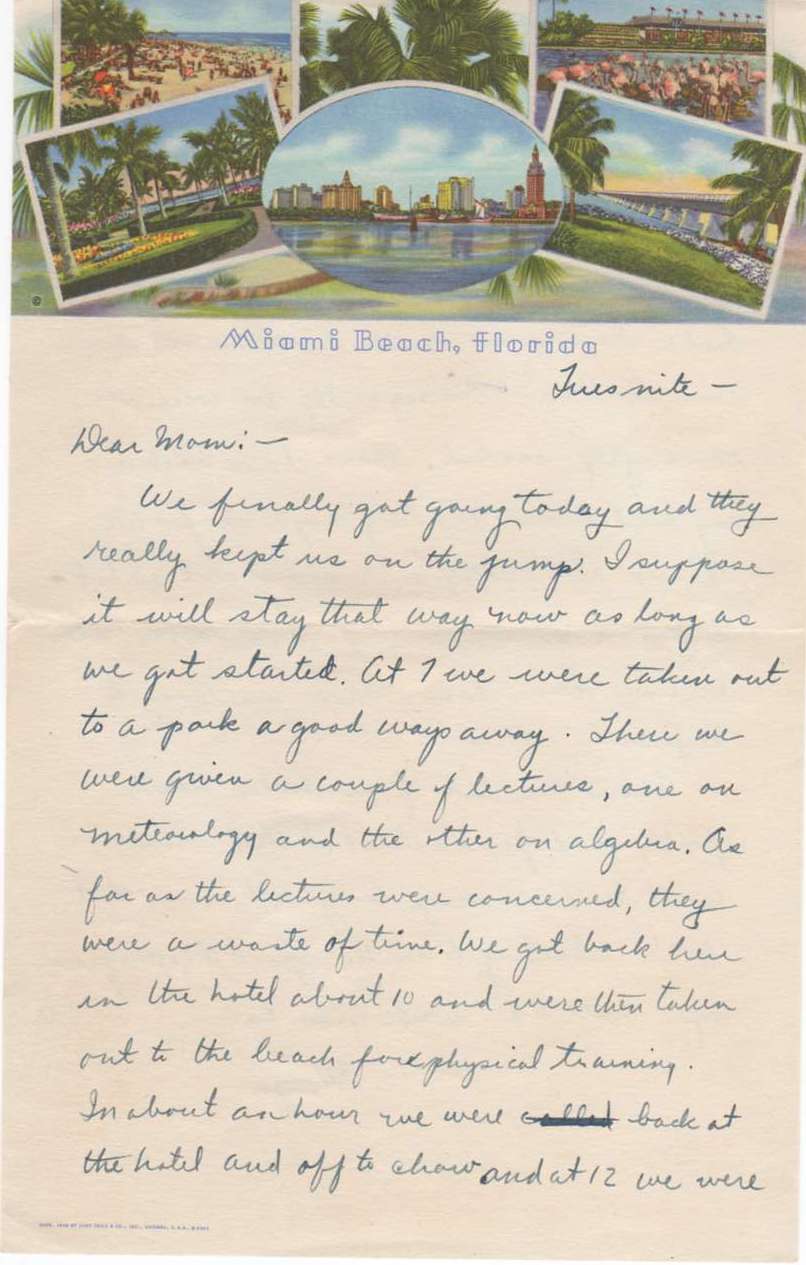 Miami Beach, Florida
Tues nite —
Dear Mom: —
We finally got going today and they
really kept us on the jump. I suppose
it will stay that way now as long as
we got started. At 7 we were taken out
to a park a good ways away. There we
were given a couple of lectures, one on
meteorology and the other on algebra. As
far as the lectures were concerned, they
were a waste of time. We got back here
in the hotel about 10 and were then taken
out to the beach for physical training.
In about an hour we were called back at
the hotel and off to chow and at 12 we were